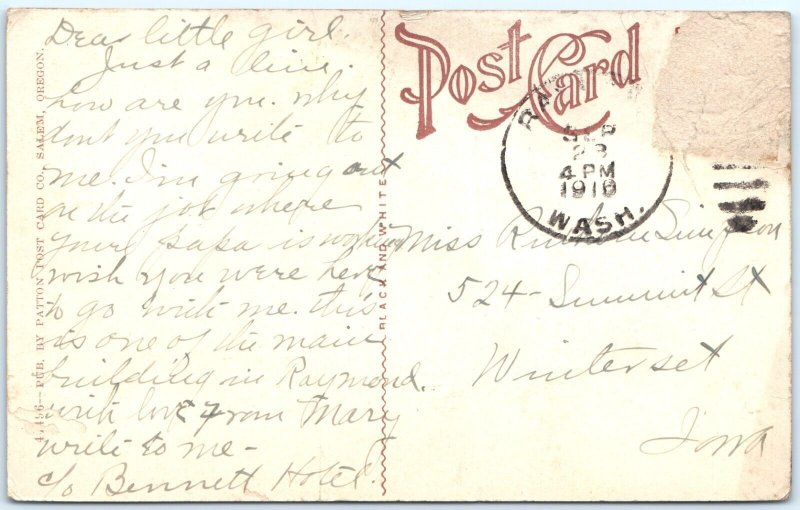 Dear little girl.
Just a line.
how are you. why
dont you write to
me. I'm going out
on the job where
your papa is workin
wish you were here
to go with me. this
is one of the main
building in Raymond.
with love from Mary
write to me -
c/o Bennett Hotel.
47496—PUB. BY PATTON POST CARD CO., SALEM, OREGON.
BLACK AND WHITE
Post Card
SEP
23
4 PM
1910
WASH.
Miss Simpson
524 - Summit St
Winterset
Iowa